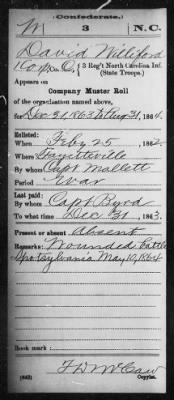 (Confederate.)
W 3 N.C.
David Williford
Co. C, 3 Reg't North Carolina Inf.
(State Troops.)
Appears on
Company Muster Roll
of the organization named above,
for Dec 31, 1863 to Aug 31, 1864.
Enlisted:
When Feby 25, 1862.
Where Fayetteville
By whom Capt Mallett
Period War
Last paid:
By whom Capt Byrd
To what time Dec 31, 1863.
Present or absent Absent
Remarks: Wounded battle
Spotsylvania May 10, 1864
Book mark:
(642)
Copyist.